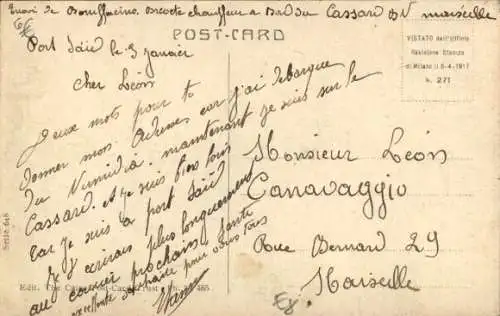 Envoi de Bonifacino, Breveté chauffeur a Bord du Cassard BN marseille
POST-CARD
VISTATO dall'Ufficio
Revisione Stampa
di Milano il 8-4-1917
N. 271
Port Saïd le 3 janvier
Cher Léon
Deux mots pour te
donner mon Adresse car j'ai debarque
du Numidia. maintenant je suis sur le
Cassard. et je suis bien loin
Car je suis a port Saïd
Je t'ecrirais plus longuement
au courrier prochain
excellente santé pour vous tous
Monsieur Léon
Canavaggio
Rue Bernard 29
Marseille
Serie 648
Edit. The Cairo Post-Card Trust 465